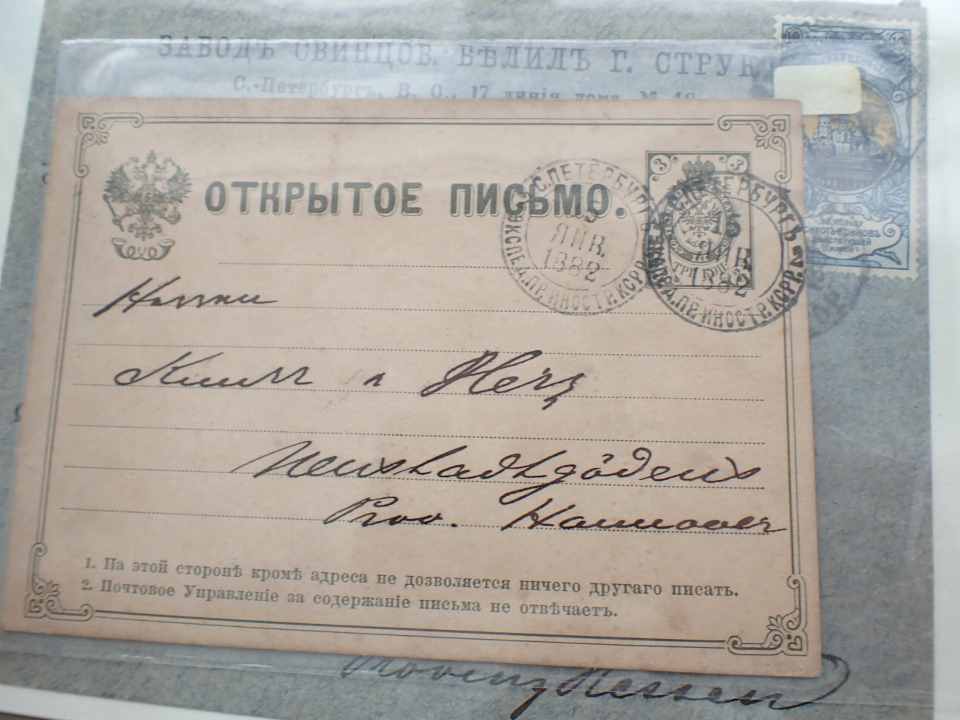 ЗАВОДЪ СВИНЦОВ. БѢЛИЛЪ Г. СТРУК
С.-Петербургъ, В. О., 17 линія
ОТКРЫТОЕ ПИСЬМО.
3 3
С.ПЕТЕРБУРГЪ
3
ЯНВ.
1882
ЭКСПЕД.ПР.ИНОСТР.КОРР.
С.ПЕТЕРБУРГЪ
15
ЯНВ.
1882
ЭКСПЕД.ПР.ИНОСТР.КОРР.
Herren
& Herz
Neustadtgödens
Prov. Hannover
1. На этой сторонѣ кромѣ адреса не дозволяется ничего другаго писать.
2. Почтовое Управленіе за содержаніе письма не отвѣчаетъ.
Provinz Hessen